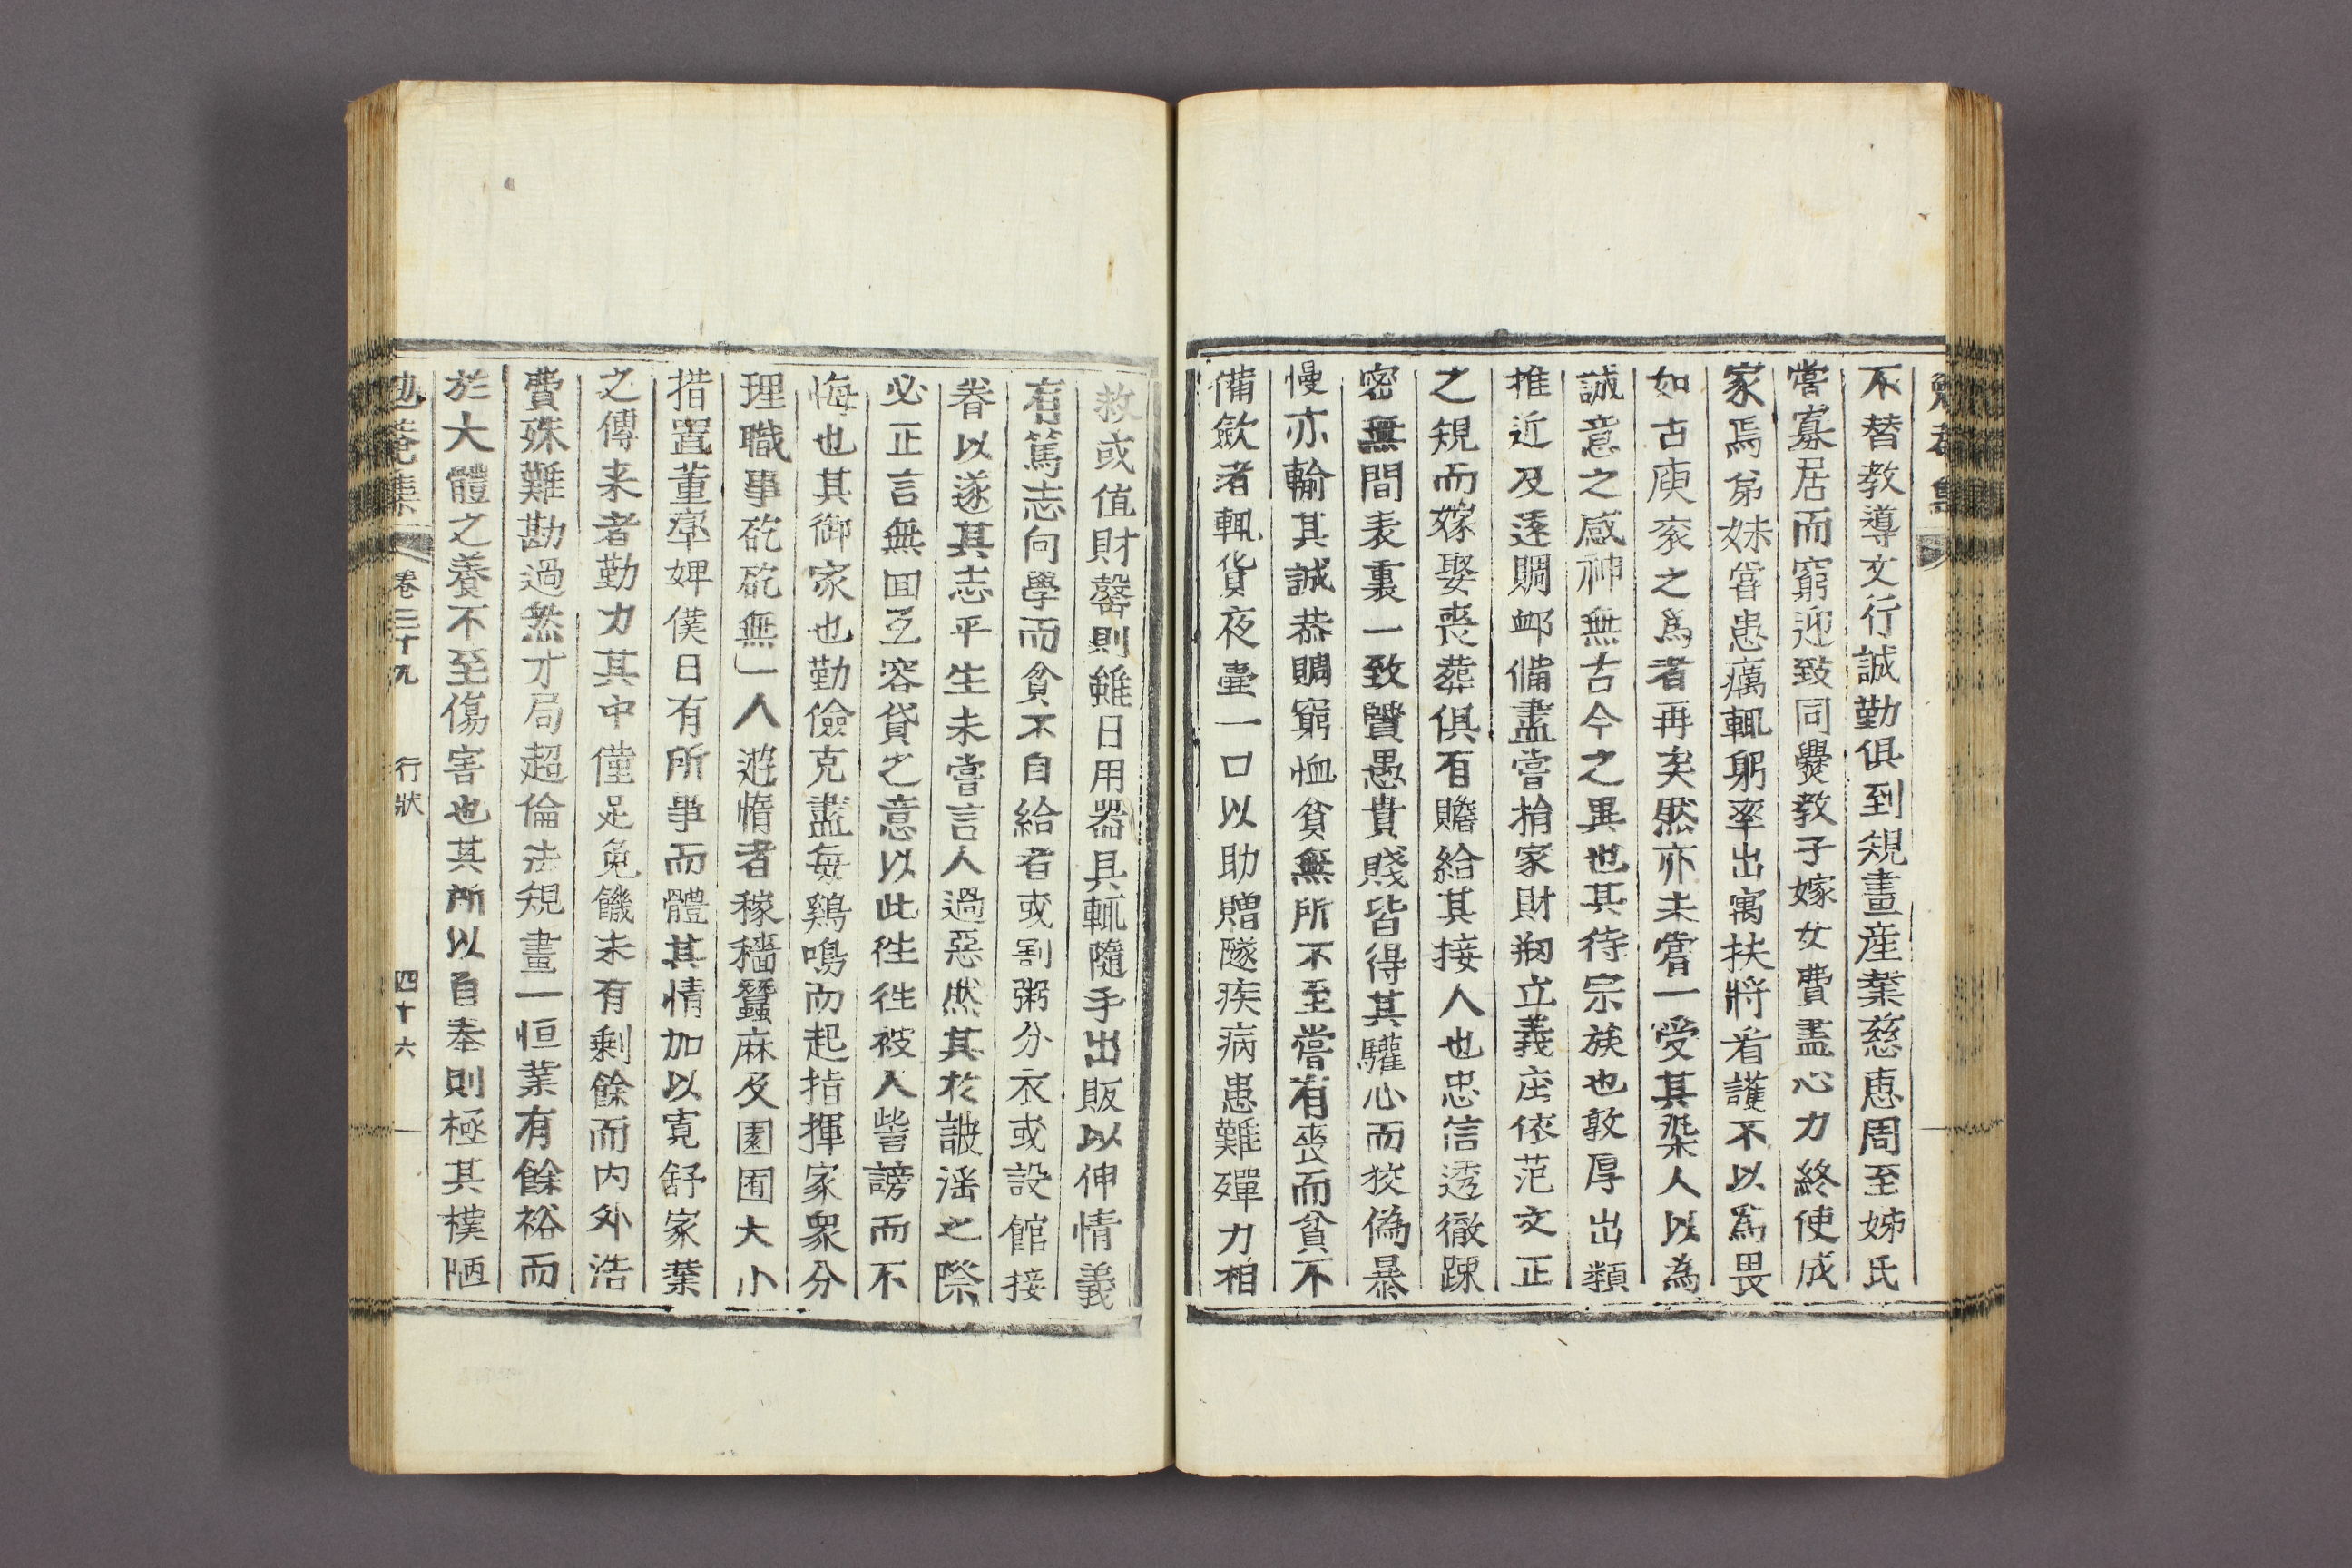 不替教導文行誠勤俱到規畫産業慈惠周至姊氏
嘗寡居而窮迎致同爨教子嫁女費盡心力終使成
家焉弟妹嘗患癘輒躬率出寓扶將看護不以爲畏
如古庾衮之爲者再矣然亦未嘗一受其染人以為
誠意之感神無古今之異也其待宗族也敦厚出類
推近及遠賙衈備盡嘗捐家財刱立義庄依范文正
之規而嫁娶喪葬俱有贍給其接人也忠信透徹踈
密無間表裏一致賢愚貴賤皆得其驩心而狡僞暴
慢亦輸其誠恭賙窮恤貧無所不至嘗有喪而貧不
備歛者輒貨夜臺一口以助贈隧疾病患難殫力相
救或値財罄則雖日用器具輒隨手出販以伸情義
有篤志向學而貧不自給者或割粥分衣或設館接
眷以遂其志平生未嘗言人過惡然其於詖淫之際
必正言無囬互容貸之意以此徃徃被人訾謗而不
悔也其御家也勤儉克盡每鷄鳴而起指揮家衆分
理職事矻矻無一人遊惰者稼穡蠶麻及園囿大小
措置董率婢僕日有所事而體其情加以寬舒家業
之傳来者勤力其中僅足免饑未有剩餘而内外浩
費殊難勘過然才局超倫法規畫一恒業有餘裕而
於大體之養不至傷害也其所以自奉則極其樸陋
卷三十九 行狀 四十六